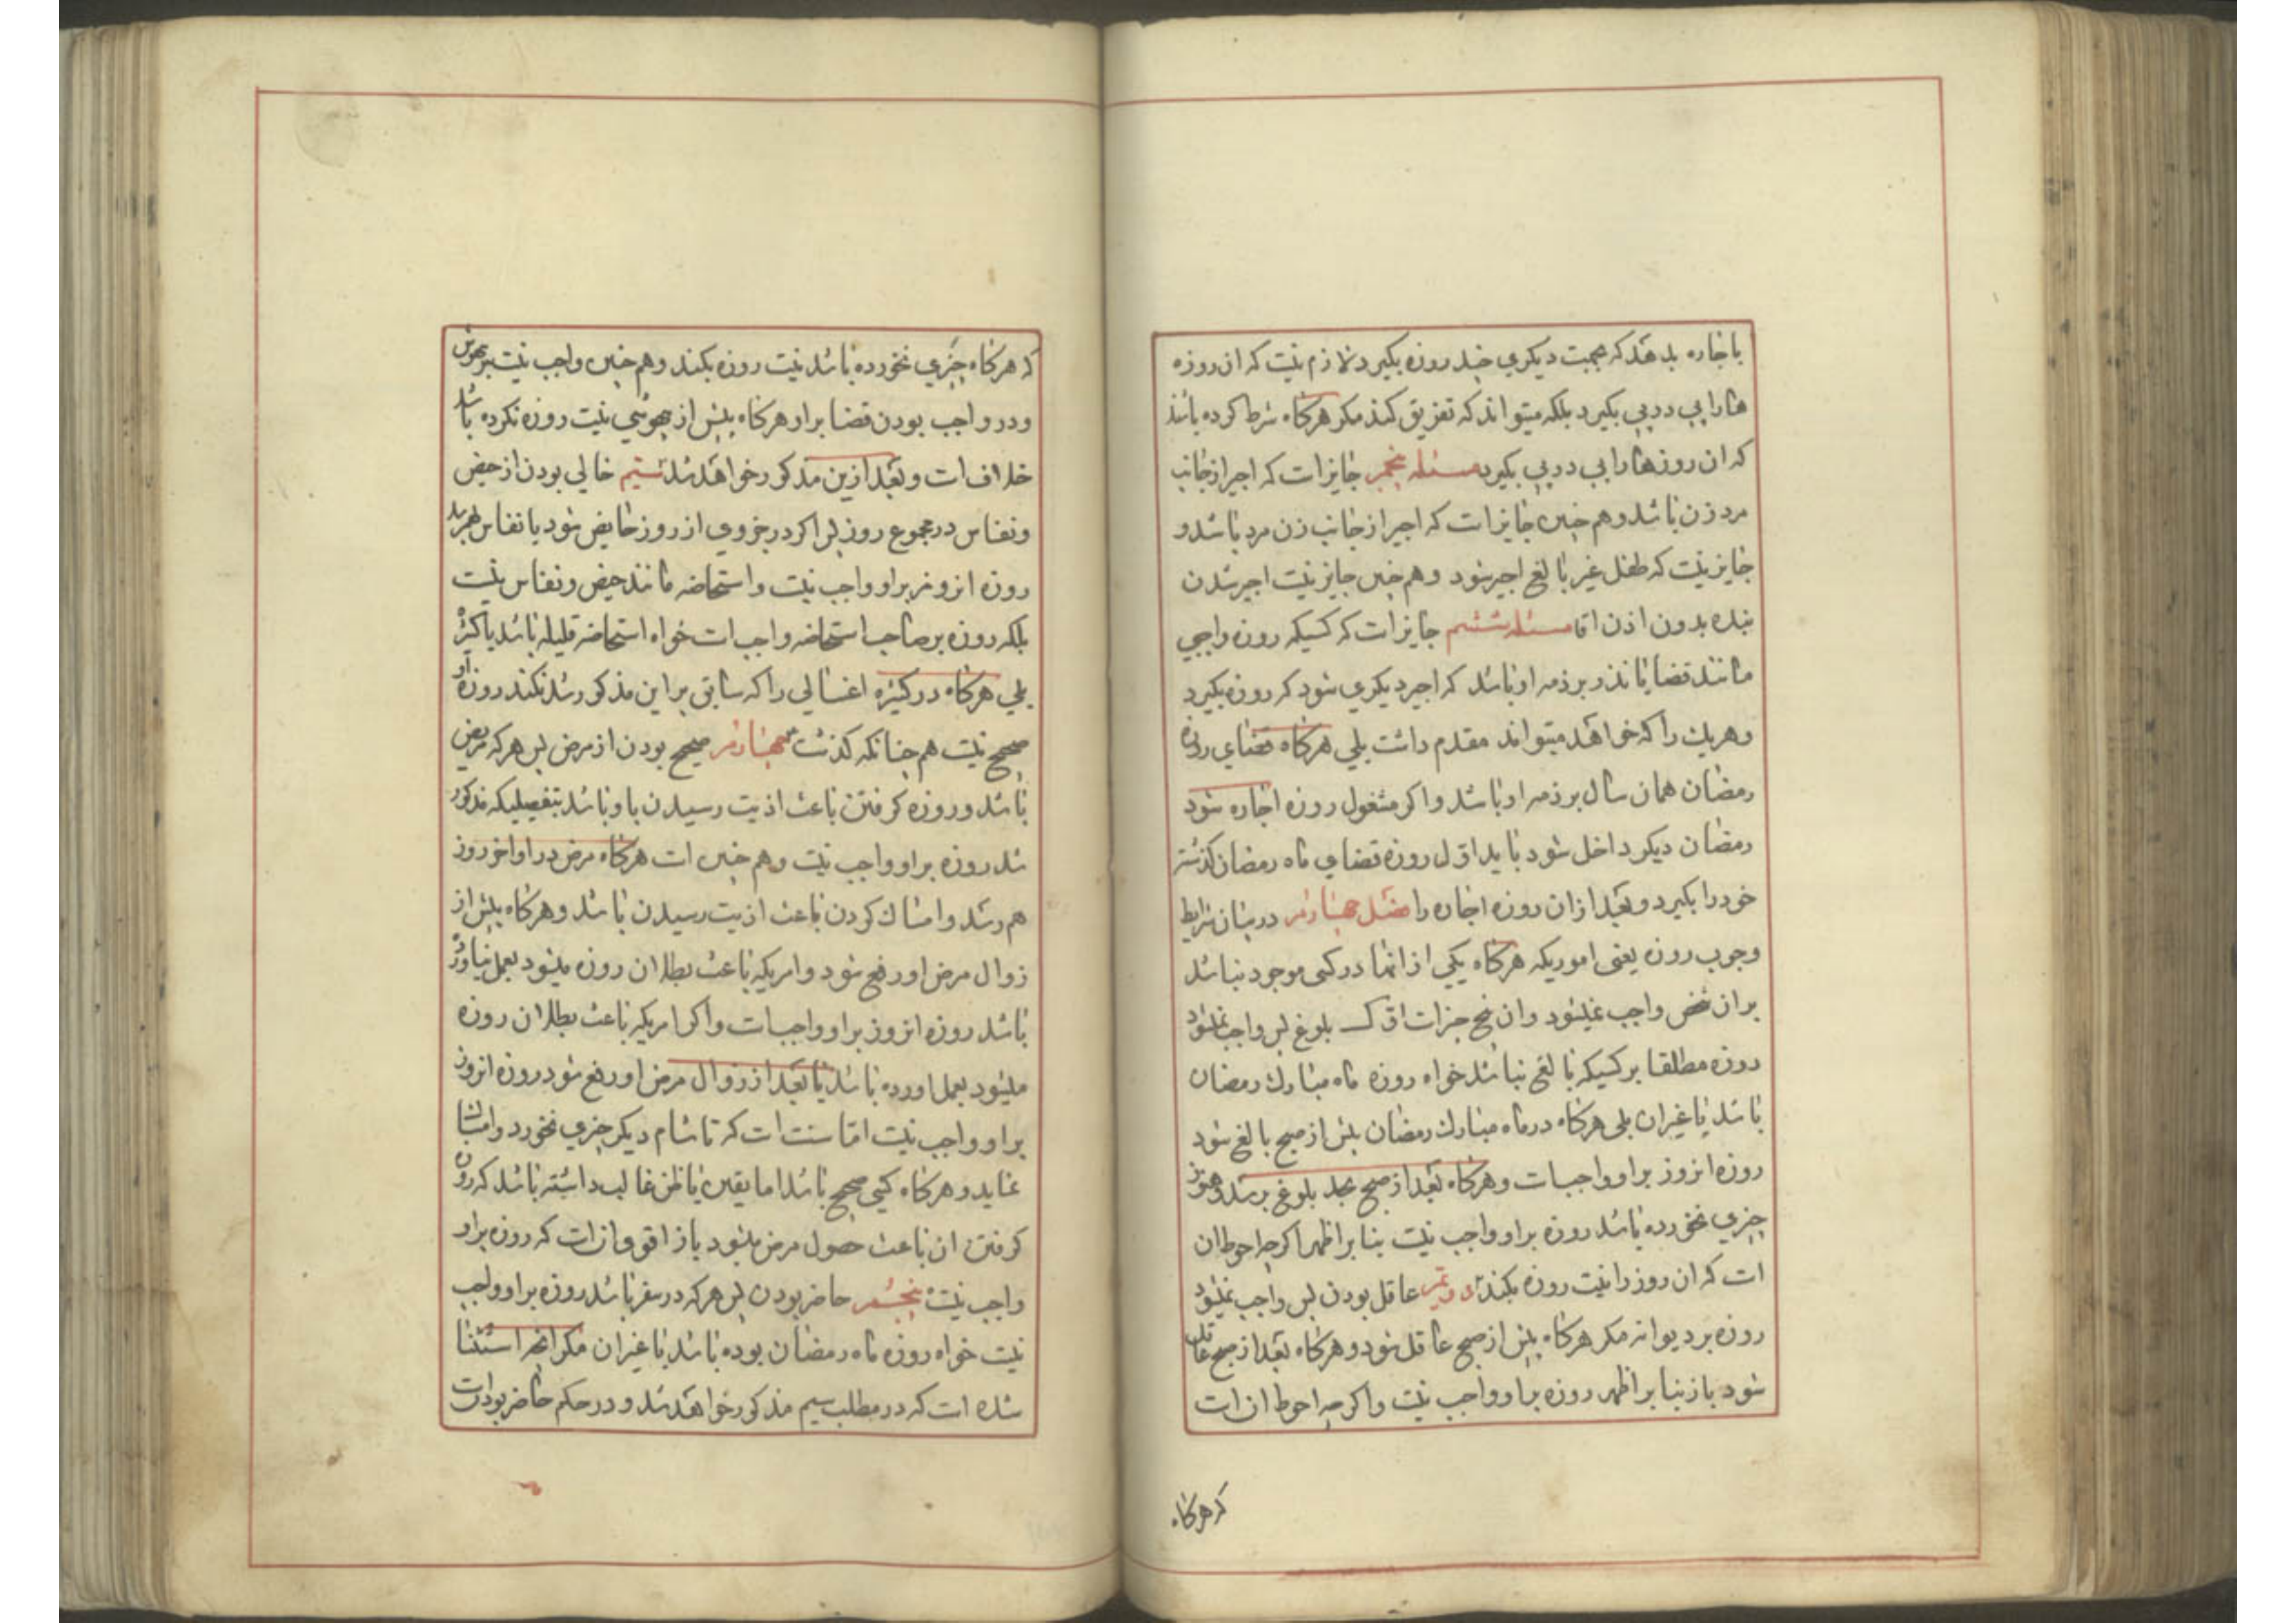 باجاره بدهد که بجهت دیکری چند روزه بکیرد لازم نیست که ان روزه
هارا پی در پی بکیرد بلکه میتواند که تفریق کند مکر هرکاه شرط کرده باشد
که ان روزها را پی در پی بکیرد مسئله پنجم جایز است که اجیر از جانب
مرد زن باشد و هم چنین جایز است که اجیر از جانب زن مرد باشد و
جایز نیست که طفل غیر بالغ اجیر شود و هم چنین جایز نیست اجیر شدن
بنده بدون اذن اقا مسئله ششم جایز است که کسیکه روزه واجبی
مانند قضا یا نذر بر ذمه او باشد که اجیر دیکری شود که روزه بکیرد
و هریک را که خواهد میتواند مقدم داشت بلی هرکاه قضای روزه
رمضان همان سال بر ذمه او باشد و اکر مشغول روزه اجاره شود
رمضان دیکر داخل شود باید اول روزه قضای ماه رمضان کذشته
خود را بکیرد و بعد از ان روزه اجاره را فصل چهارم در بیان شرایط
وجوب روزه یعنی اموریکه هرکاه یکی از انها در کسی موجود نباشد
بر ان شخص واجب نمیشود و ان پنج چیز است اول بلوغ پس واجب نمیشود
روزه مطلقا بر کسیکه بالغ نباشد خواه روزه ماه مبارک رمضان
باشد یا غیر ان بلی هرکاه در ماه مبارک رمضان پیش از صبح بالغ شود
روزه انروز بر او واجب است و هرکاه بعد از صبح بحد بلوغ برسد و هنوز
چیزی نخورده باشد روزه بر او واجب نیست بنا بر اظهر اکرچه احوط ان
است که ان روز را نیت روزه بکند دویم عاقل بودن پس واجب نمیشود
روزه بر دیوانه مکر هرکاه پیش از صبح عاقل شود و هرکاه بعد از صبح عاقل
شود باز بنا بر اظهر روزه بر او واجب نیست و اکرچه احوط ان است
که هرکاه
که هرکاه چیزی نخورده باشد نیت روزه بکند و هم چنین واجب نیست بر بیهوش
و در واجب بودن قضا بر او هرکاه پیش از بیهوشی نیت روزه نکرده باشد
خلاف است و بعد ازین مذکور خواهد شد سیم خالی بودن از حیض
و نفاس در مجموع روز پس اکر در جزوی از روز حایض شود یا نفاس بهم رسد
روزه انروز بر او واجب نیست و استحاضه مانند حیض و نفاس نیست
بلکه روزه بر صاحب استحاضه واجب است خواه استحاضه قلیله باشد یا کثیره
بلی هرکاه در کثیره اغسالی را که سابق بر این مذکور شد نکند روزه او
صحیح نیست هم چنانکه کذشت چهارم صحیح بودن از مرض پس هرکه مریض
باشد و روزه کرفتن باعث اذیت رسیدن باو باشد بتفصیلیکه مذکور
شد روزه بر او واجب نیست و هم چنین است هرکاه مرض در اواخر روز
هم رسد و امساک کردن باعث اذیت رسیدن باشد و هرکاه پیش از
زوال مرض او رفع شود و امریکه باعث بطلان روزه میشود بعمل نیاورده
باشد روزه انروز بر او واجب است و اکر امریکه باعث بطلان روزه
میشود بعمل اورده باشد یا بعد از زوال مرض او رفع شود روزه انروز
بر او واجب نیست اما سنت است که تا شام دیکر چیزی نخورد و امساک
نماید و هرکاه کسی صحیح باشد اما یقین یا ظن غالب داشته باشد که روزه
کرفتن ان باعث حصول مرض میشود باز اقوی ان است که روزه بر او
واجب نیست پنجم حاضر بودن پس هرکه در سفر باشد روزه بر او واجب
نیست خواه روزه ماه رمضان بوده باشد یا غیر ان مکر انچه استثنا
شده است که در مطلب سیم مذکور خواهد شد و در حکم حاضر بودن است